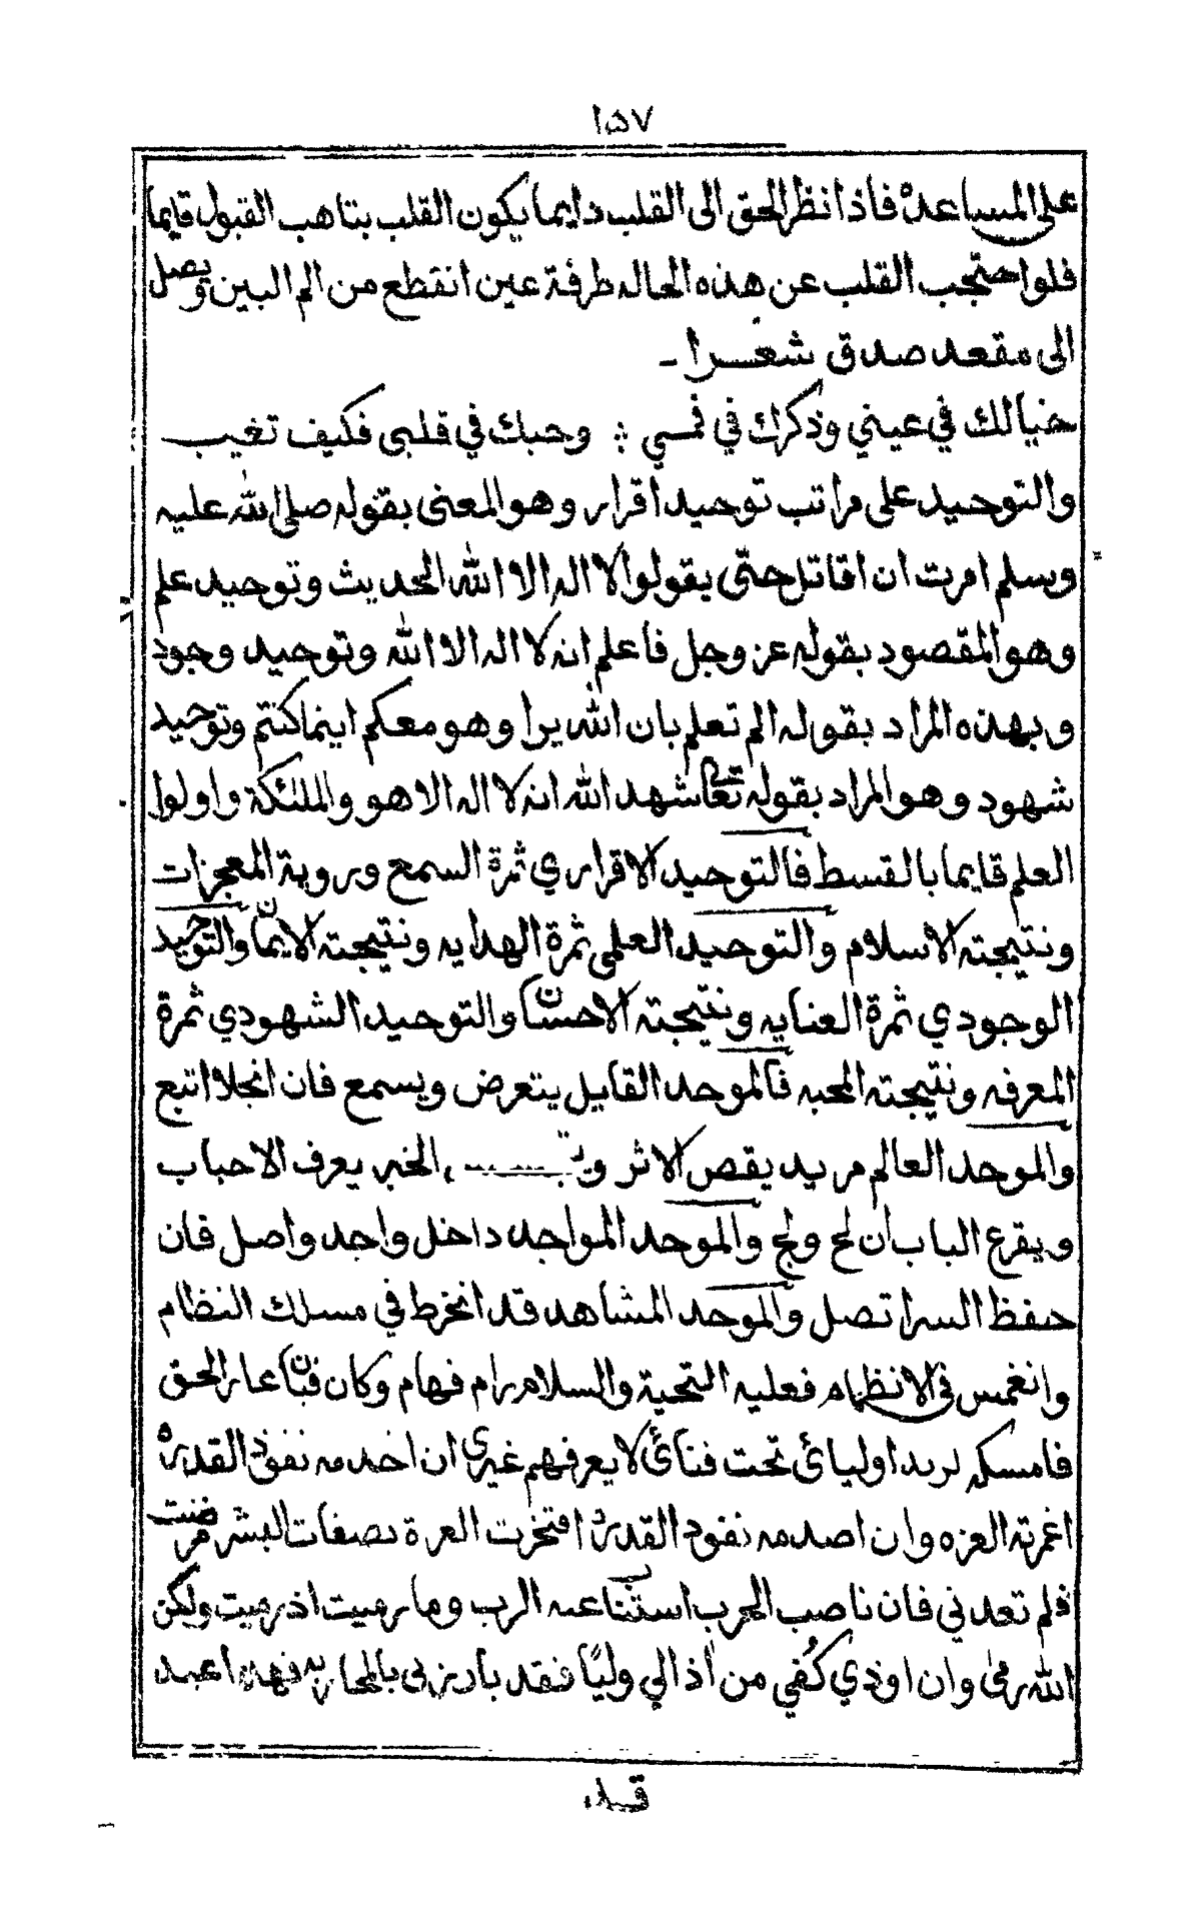 ١٥٧
على المساعدة فاذا نظر الحق الى القلب دايما يكون القلب بتاهب القبول قايما
فلوا حتجب القلب عن هذه الحاله طرفة عين انقطع من الم البين ويصل
الى مقعد صدق شعرا -
خيالك في عيني وذكرك في فمي ؛ وحبك في قلبى فكيف تغيب
والتوحيد على مراتب توحيد اقرار وهو المعنى بقوله صلى الله عليه
وسلم امرت ان اقاتل حتى يقولوا لا اله الا الله الحديث وتوحيد علم
وهو المقصود بقوله عز وجل فاعلم انه لا اله الا الله وتوحيد وجود
وبهذه المراد بقوله الم تعلم بان الله يرا وهو معكم اينما كنتم وتوحيد
شهود وهو المراد بقوله تعا شهد الله انه لا اله الا هو والملئكة واولوا
العلم قايما بالقسط فالتوحيد الاقراري ثمرة السمع وروية المعجزات
ونتيجته الاسلام والتوحيد العلمى ثمرة الهدايه ونتيجته الايمان والتوحيد
الوجودي ثمرة العنايه ونتيجته الاحسان والتوحيد الشهودي ثمرة
المعرفه ونتيجته المحبه فالموحد القايل يتعرض ويسمع فان انجلا اتبع
والموحد العالم مريد يقص الاثر الخبر يعرف الاحباب
ويقرع الباب ان لح ولج والموحد المواجد داخل واجد واصل فان
حفظ السر اتصل والموحد المشاهد قد انخرط في مسلك النظام
وانغمس فى الانظام فعليه التحية والسلام رام فهام وكان فبان عار الحق
فامسكه اوليائ تحت فنائ لا يعرفهم غيرى ان اخدمه نفوذ القدرة
العزه وان اصدمه نفود القدرة افتخرت العزة بصفات البشر مرضت
فلم تعدني فان ناصب الحرب استثنا عنه الرب وما رميت اذ رميت ولكن
الله رمى وان اوذي كفي من اذا لي وليا فقد بارزنى بالمحاربه فهذا عبد
قد